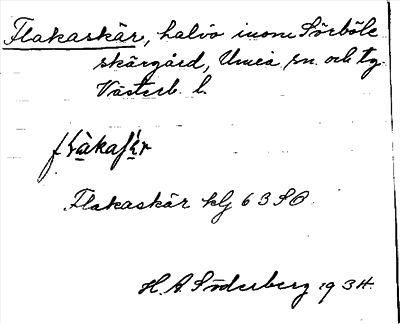 Flakaskär, halvö inom Sörböle
skärgård, Umeå sn. och tg.
Västerb. l.
Flakaskär klj 63 SO.
H. A. Söderberg 1934.